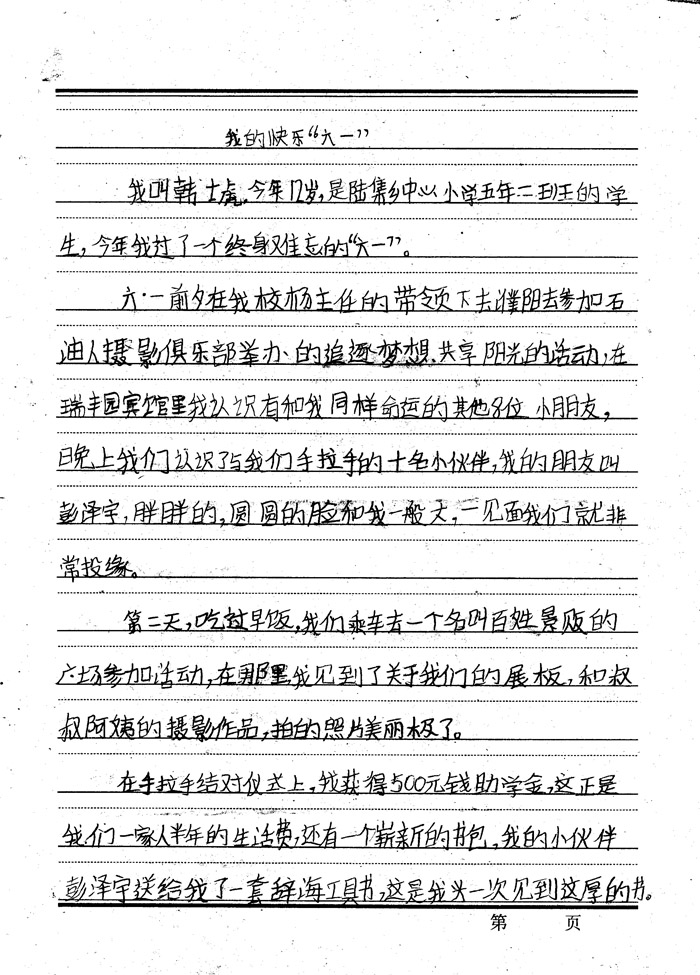 我的快乐“六一”
我叫韩士虎,今年12岁,是陆集乡中心小学五年二班的学
生,今年我过了一个终身难忘的“六一”。
六·一前夕在我校杨主任的带领下去濮阳去参加石
油人摄影俱乐部举办的追逐梦想.共享阳光的活动,在
瑞丰园宾馆里我认识有和我同样命运的其他8位小朋友,
晚上我们认识了与我们手拉手的十名小伙伴,我的朋友叫
彭泽宇,胖胖的,圆圆的脸和我一般大,一见面我们就非
常投缘。
第二天,吃过早饭,我们乘车去一个名叫百姓景贩的
广场参加活动,在那里我见到了关于我们的展板,和叔
叔阿姨的摄影作品,拍的照片美丽极了。
在手拉手结对仪式上,我获得500元钱助学金,这正是
我们一家人半年的生活费,还有一个崭新的书包,我的小伙伴
彭泽宇送给我了一套辞海工具书,这是我头一次见到这厚的书。
第 页